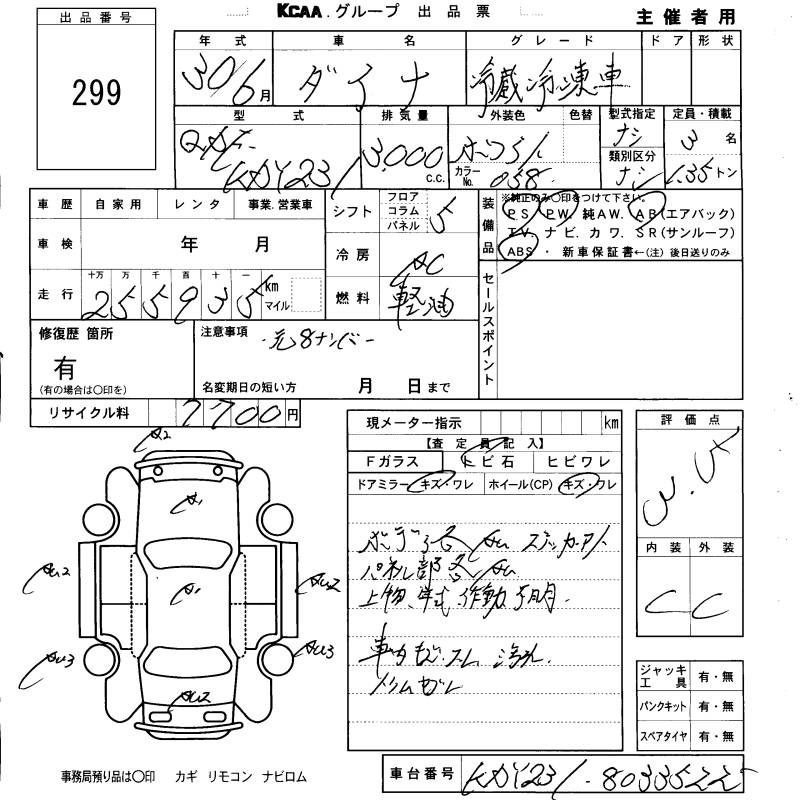 KCAA.グループ 出品票
主催者用
出品番号
299
年式 車名 グレード ドア 形状
30/6月 ダイナ 冷蔵冷凍車
型式 排気量 外装色 色替 型式指定 定員・積載
QDF-KDY231 3,000 c.c. ホワイト ナシ 3名
カラーNo. 058 類別区分 ナシ 1.35トン
車歴 自家用 レンタ 事業.営業車
シフト フロア コラム パネル 5
装備品 ※純正のみ〇印をつけて下さい。
PS PW 純AW. AB(エアバック)
TV ナビ. カワ. SR(サンルーフ)
ABS ・ 新車保証書←(注) 後日送りのみ
車検 年 月
冷房 AC
走行 十万 万 千 百 十 一 km マイル
255935
燃料 軽油
セールスポイント
修復歴 箇所
有
(有の場合は〇印を)
注意事項
元8ナンバー
名変期日の短い方 月 日まで
リサイクル料 7700円
現メーター指示 km
【査定員記入】
Fガラス トビ石 ヒビワレ
ドアミラー キズ・ワレ ホイール(CP) キズ・ワレ
パネル部
上物、年式、作動
車内
評価点
3.5
内装 外装
C C
A2
A1
AU2
A1
AU2
AU3
AU3
AU2
ジャッキ工具 有・無
パンクキット 有・無
スペアタイヤ 有・無
事務局預り品は〇印 カギ リモコン ナビロム
車台番号 KDY231-8033522